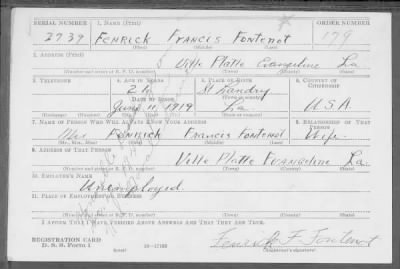 SERIAL NUMBER 1. NAME (Print) ORDER NUMBER
2739 FENRICK FRANCIS FONTENOT 179
(First) (Middle) (Last)
2. ADDRESS (Print)
Ville Platte Evangeline La.
(Number and street or R. F. D. number) (Town) (County) (State)
3. TELEPHONE 4. AGE IN YEARS 5. PLACE OF BIRTH 6. COUNTRY OF CITIZENSHIP
St Landry
(Town or county)
DATE OF BIRTH
11, 1919 La U.S.A.
(Mo.) (Day) (Yr.) (State or country)
7. NAME OF PERSON WHO WILL ALWAYS KNOW YOUR ADDRESS 8. RELATIONSHIP OF THAT PERSON
Mrs FENRICK FRANCIS FONTENOT Wife
(Mr., Mrs., Miss) (First) (Middle) (Last)
9. ADDRESS OF THAT PERSON
Ville Platte Evangeline La
(Number and street or R. F. D. number) (Town) (County) (State)
10. EMPLOYER'S NAME
Unemployed
11. PLACE OF EMPLOYMENT OR BUSINESS
(Number and street or R. F. D. number) (Town) (County) (State)
I AFFIRM THAT I HAVE VERIFIED ABOVE ANSWERS AND THAT THEY ARE TRUE.
REGISTRATION CARD
D. S. S. Form 1
(Registrant's signature)